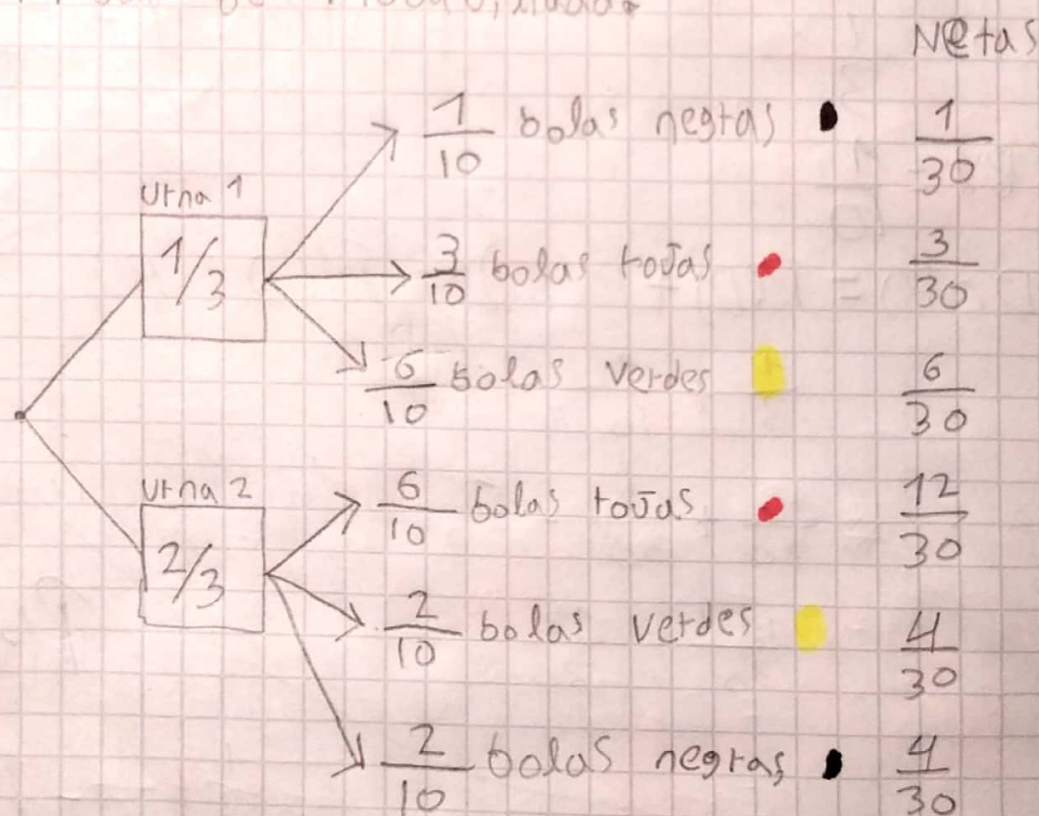 Netas
1/10 bolas negras 1/30
Urna 1
1/3
3/10 bolas rojas = 3/30
6/10 bolas verdes 6/30
Urna 2
2/3
6/10 bolas rojas 12/30
2/10 bolas verdes 4/30
2/10 bolas negras 4/30